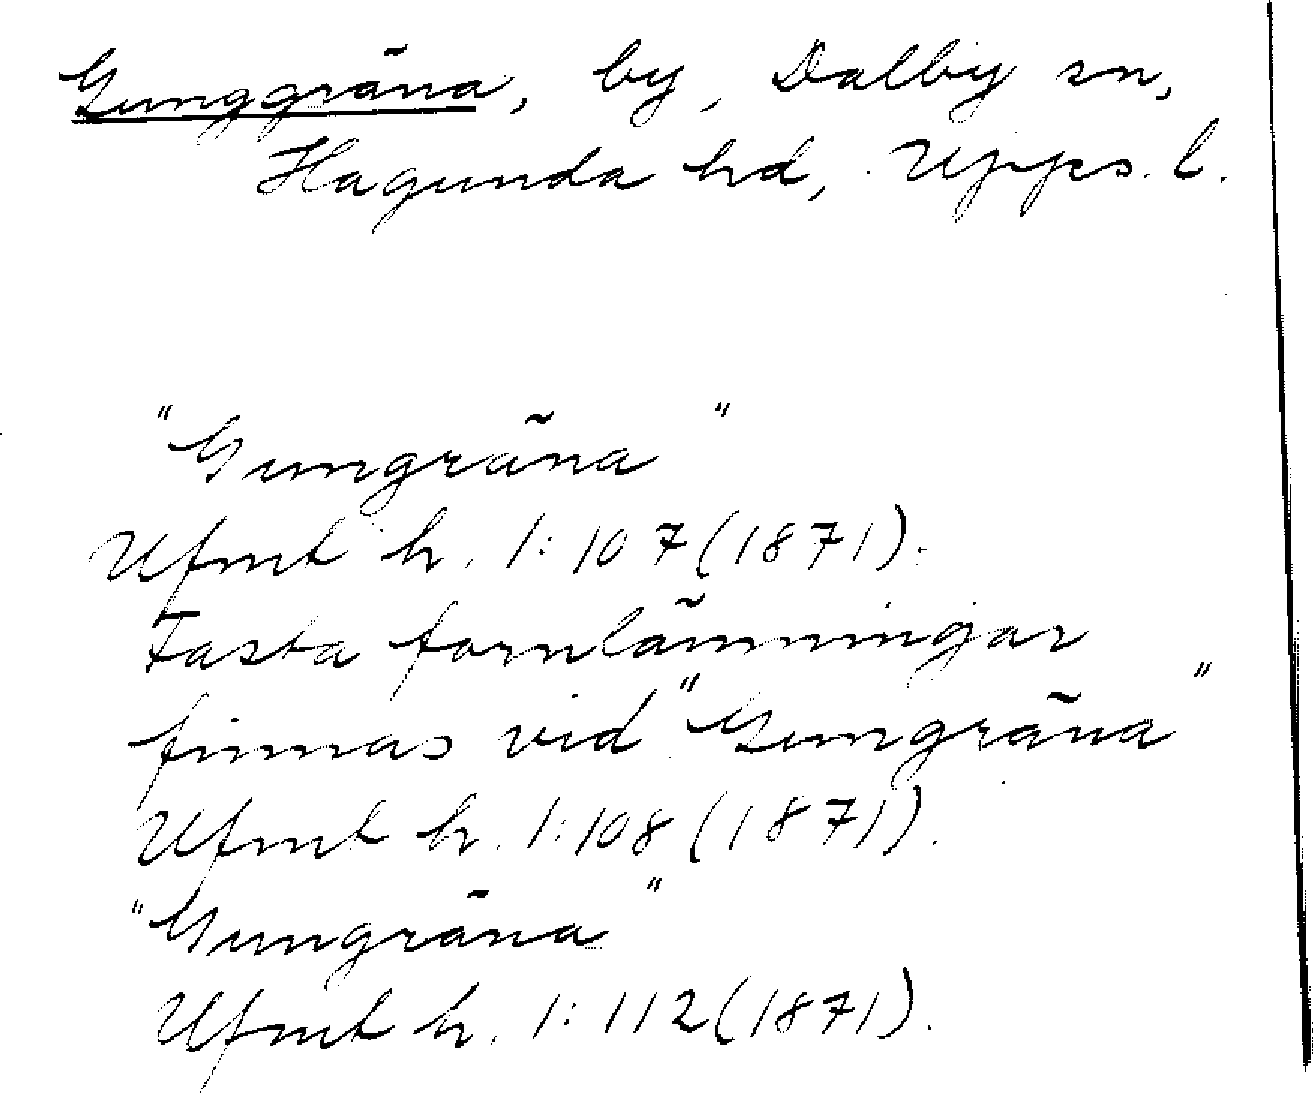 Gunggräna, by, Dalby sn,
Hagunda hd, Upps. l.
"Gungräna"
Ufmt h. 1:107 (1871).
Fasta fornlämningar
finnas vid "Gungräna"
Ufmt h. 1:108 (1871).
"Gungräna"
Ufmt h. 1:112 (1871).